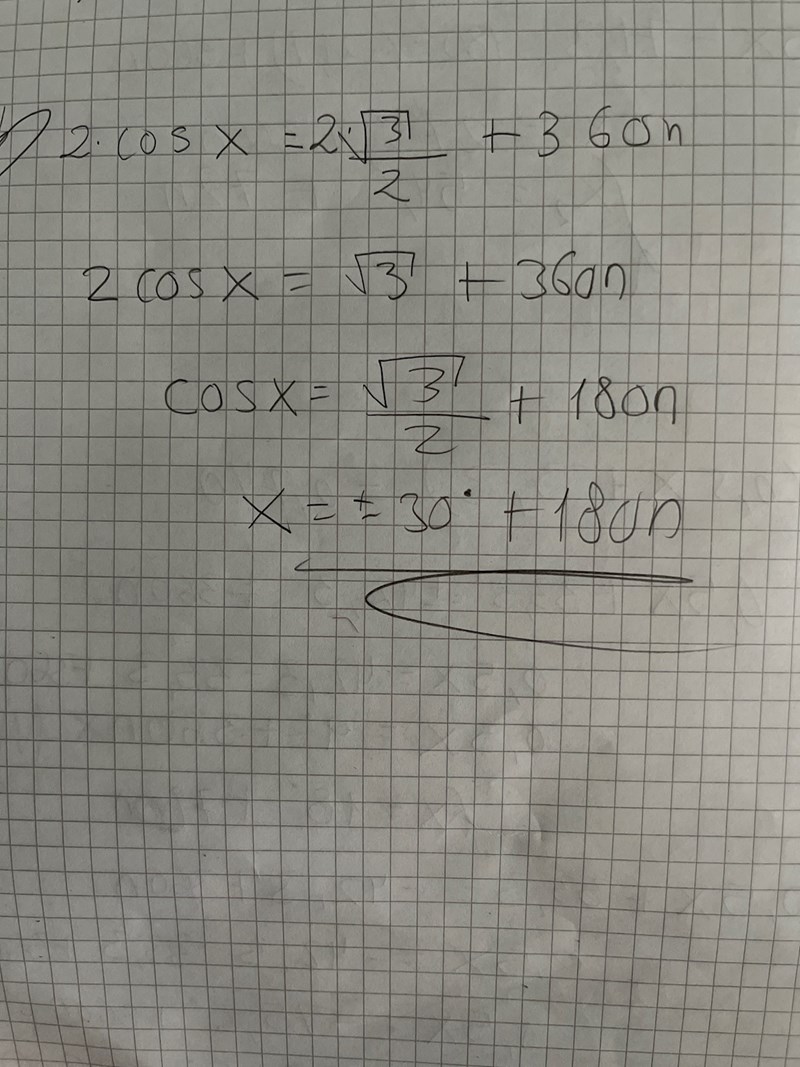 b) 2·cos x = 2·√3/2 + 360n
2 cos x = √3 + 360n
cos x = √3/2 + 180n
x = ± 30° + 180n